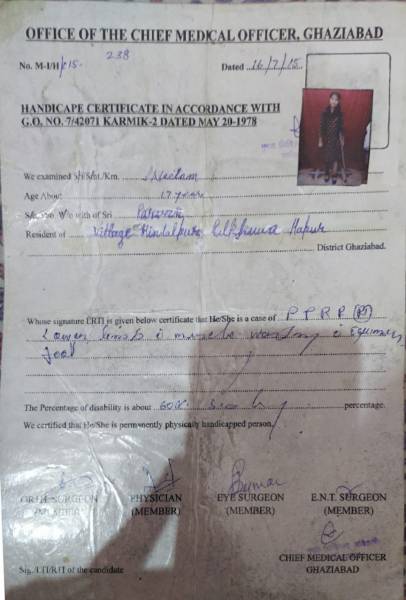 OFFICE OF THE CHIEF MEDICAL OFFICER, GHAZIABAD
238
No. M-I/H/C15- Dated 16/7/15
HANDICAPE CERTIFICATE IN ACCORDANCE WITH
G.O. NO. 7/42071 KARMIK-2 DATED MAY 20-1978
We examined Neelam
Age About 17 year
W/o with of Sri
Resident of Village Hapur
District Ghaziabad.
Whose signature LRTI is given below certificate that He/She is a case of P P R P (R)
Lower limb muscle wasting Equinus
foot
The Percentage of disability is about 60% Sixty percentage.
We certified that He/She is permanently physically handicapped person.
ORTH. SURGEON PHYSICIAN EYE SURGEON E.N.T. SURGEON
(MEMBER) (MEMBER) (MEMBER) (MEMBER)
CHIEF MEDICAL OFFICER
GHAZIABAD
Sig./LTI/RTI of the candidate